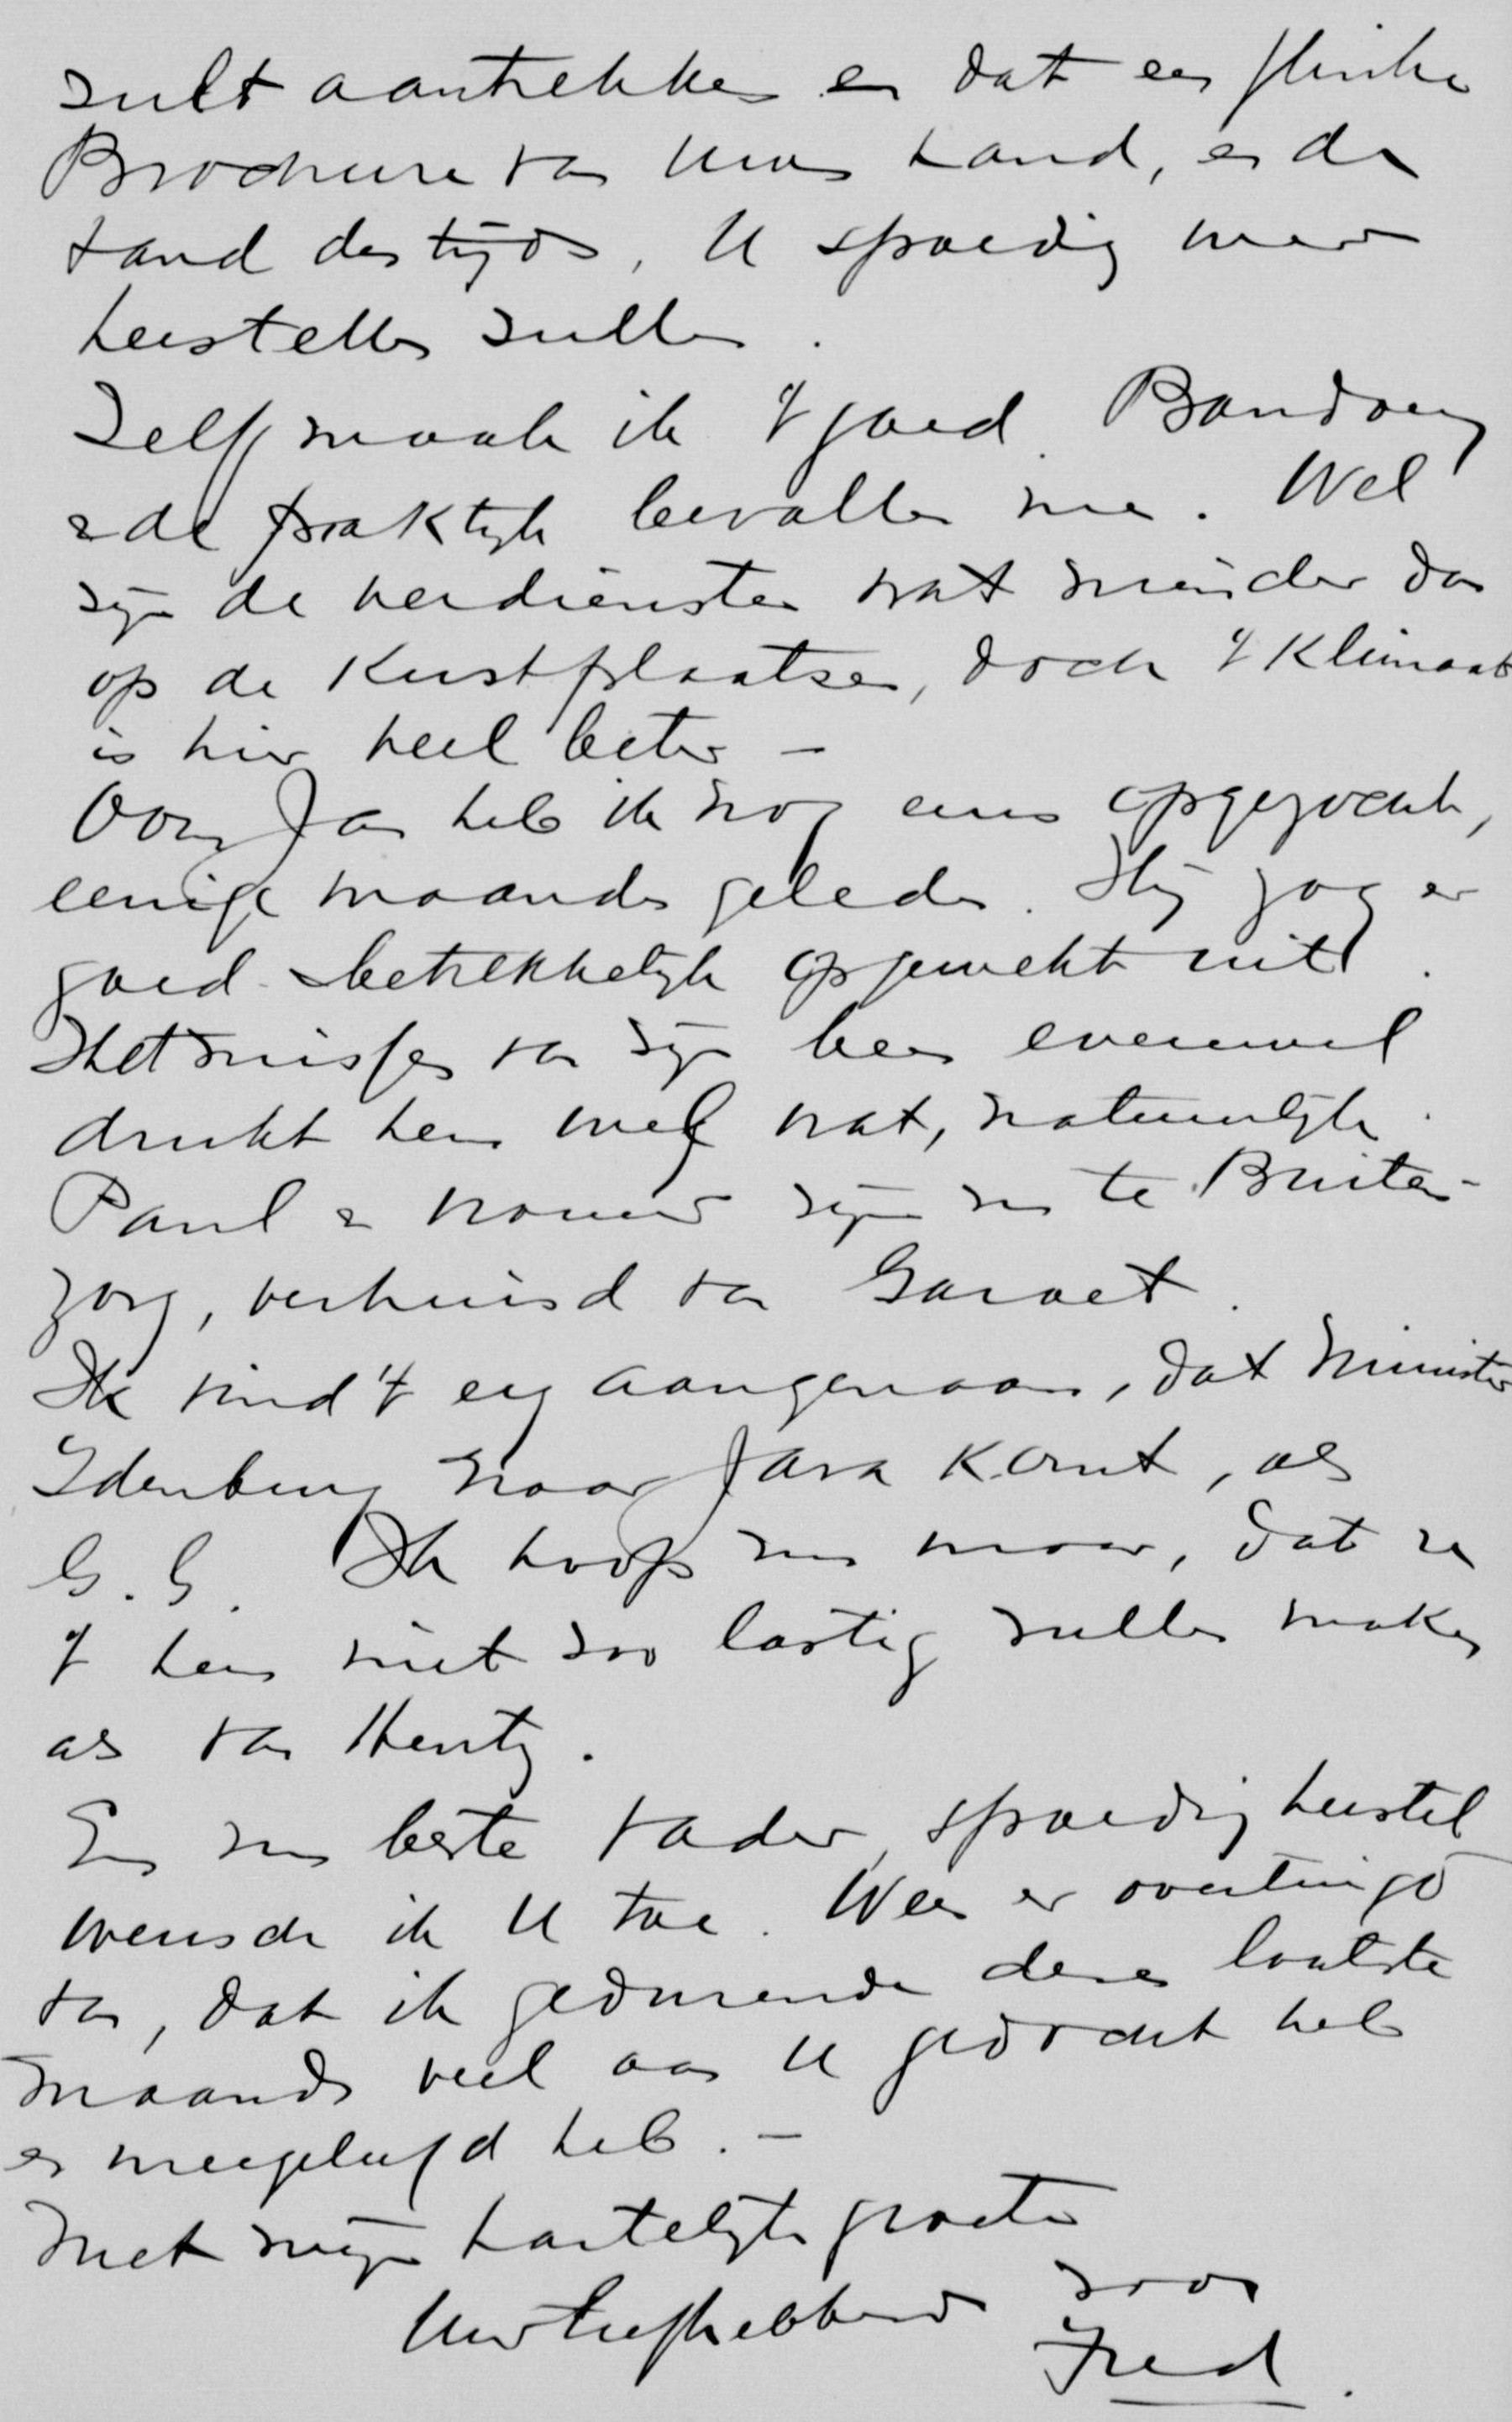 zult aantrekken en dat een flinke
Brochure van Uwe hand, en de
tand des tijds, U spoedig weer
herstellen zullen.
Zelf maak ik 't goed. Bandoeng
& de praktijk bevallen me. Wel
zijn de verdiensten wat minder dan
op de Kustplaatsen, doch 't Klimaat
is hier heel beter –
Oom Jan heb ik nog eens opgezocht,
eenige maanden geleden. Hij zag er
goed & betrekkelijk opgewekt uit.
Het missen van zijn been evenwel
drukt hem wel wat, natuurlijk.
Paul & vrouw zijn nu te Buiten-
zorg, verhuisd van Garoet.
Ik vind 't erg aangenaam, dat Minister
Idenburg naar Java komt, als
G. G. Ik hoop nu maar, dat ze
't hem niet zoo lastig zullen maken
als van Heutz.
En nu beste Vader, spoedig herstel
wensch ik U toe. Wees er overtuigd
van, dat ik gedurende deze laatste
maanden veel aan U gedacht heb
en meegeleefd heb. –
Met mijn hartelijke groeten
Uw liefhebbend zoon
Fred.